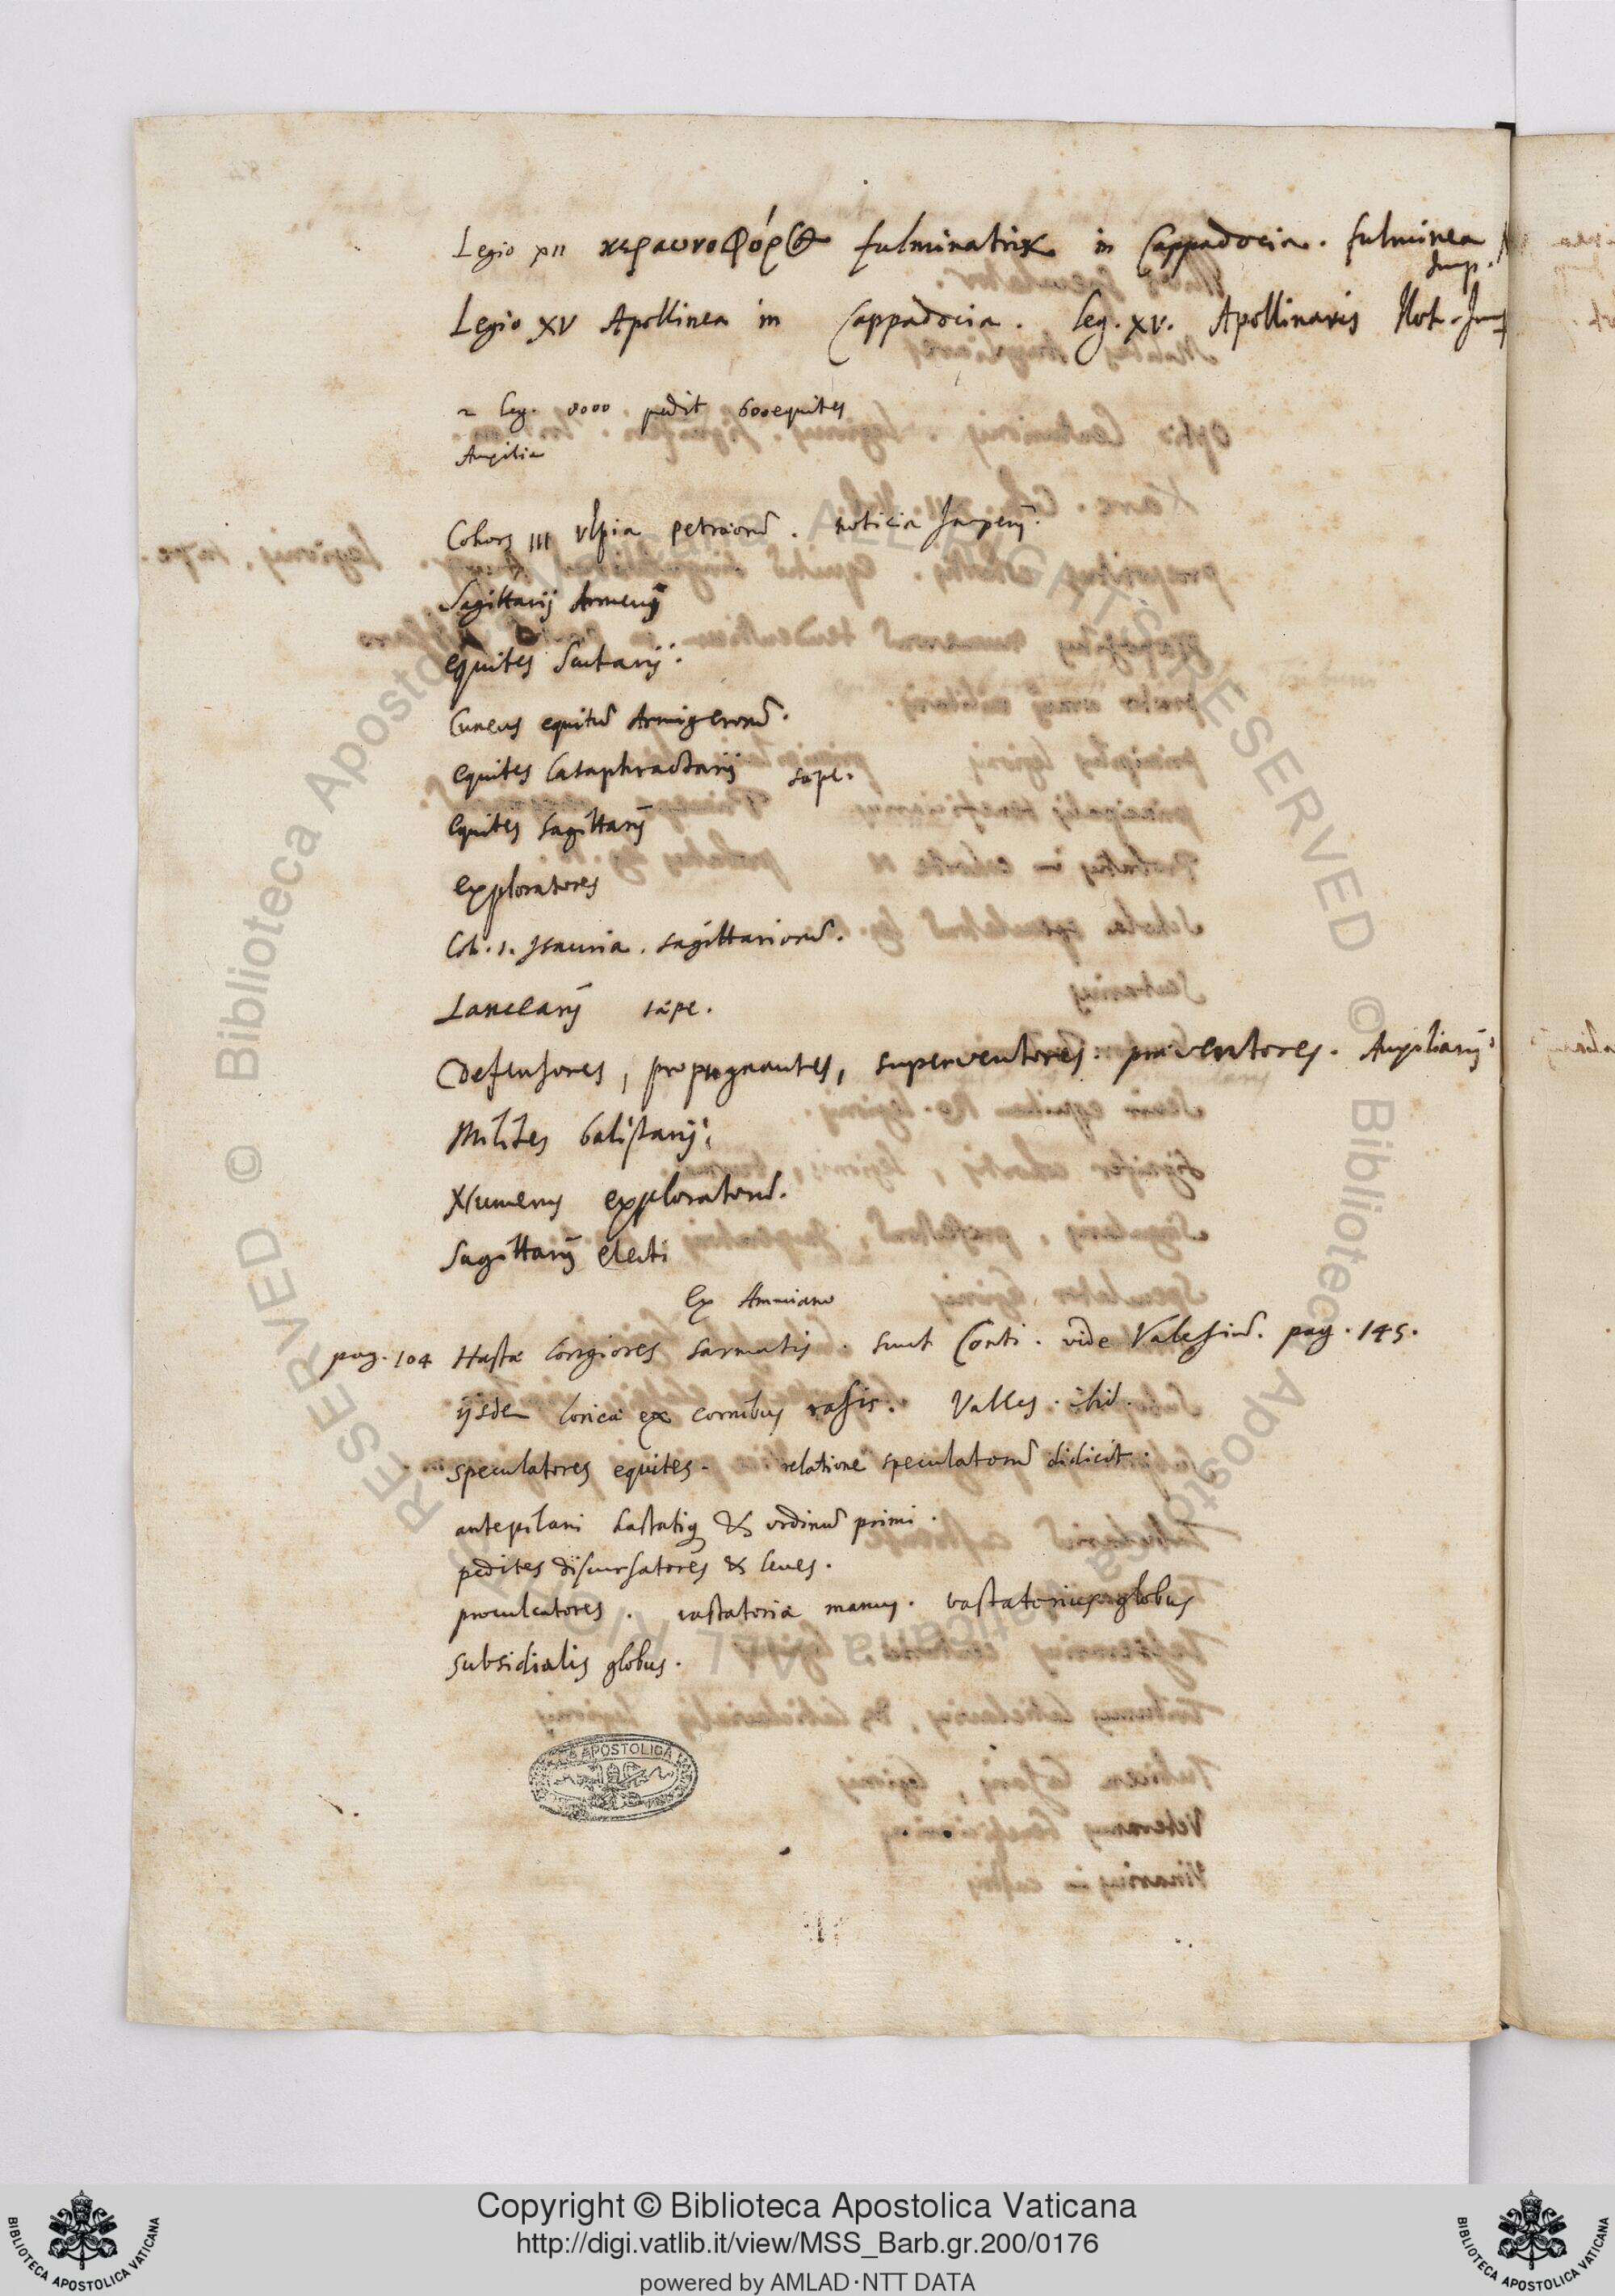 Legio XII κεραωνοφόρος fulminatrix in Cappadocia. fulminea
Imp.
Legio XV Apollinea in Cappadocia. Leg. XV. Apollinaris Not. Imp
2 leg. 8000 pedit 600 equites
Auxilia
Cohors III Ulpia petraeorū. noticia Imperij.
Sagittarij Armenij
equites Scutarij.
Cuneus equitū Armigerorū.
equites Cataphractarij sæpe.
Equites sagittarij
exploratores
Coh. 1. Isauria. sagittariorū.
Lancearij sæpe.
Defensores, propugnantes, superventores. præventores. Auxiliarij
Milites balistarij;
Numerus exploratorū.
Sagittarij electi
Ex Ammiano
pag. 104 Hastæ longiores sarmatis. sunt Conti. vide Valesiū. pag. 145.
ijsdē lorica ex cornibus rasis. Valles. ibid.
speculatores equites. relatione speculatorū didicit.
antepilani hastatiq & ordinū primi.
pedites discursatores & leues.
proculcatores. vastatoria manus. vastatorius globus
subsidialis globus.
BIBLIOTECA APOSTOLICA VATICANA
© Biblioteca Apostolica Vaticana ALL RIGHTS RESERVED
Copyright © Biblioteca Apostolica Vaticana
http://digi.vatlib.it/view/MSS_Barb.gr.200/0176
powered by AMLAD·NTT DATA
BIBLIOTECA APOSTOLICA VATICANA